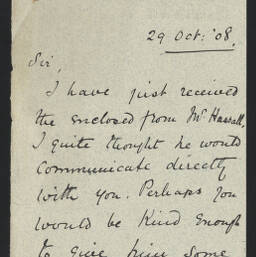 29 Oct: '08.
Sir,
I have just received
the enclosed from Mr Hassall,
I quite thought he would
communicate directly
with you. Perhaps you
would be kind enough
to give him some